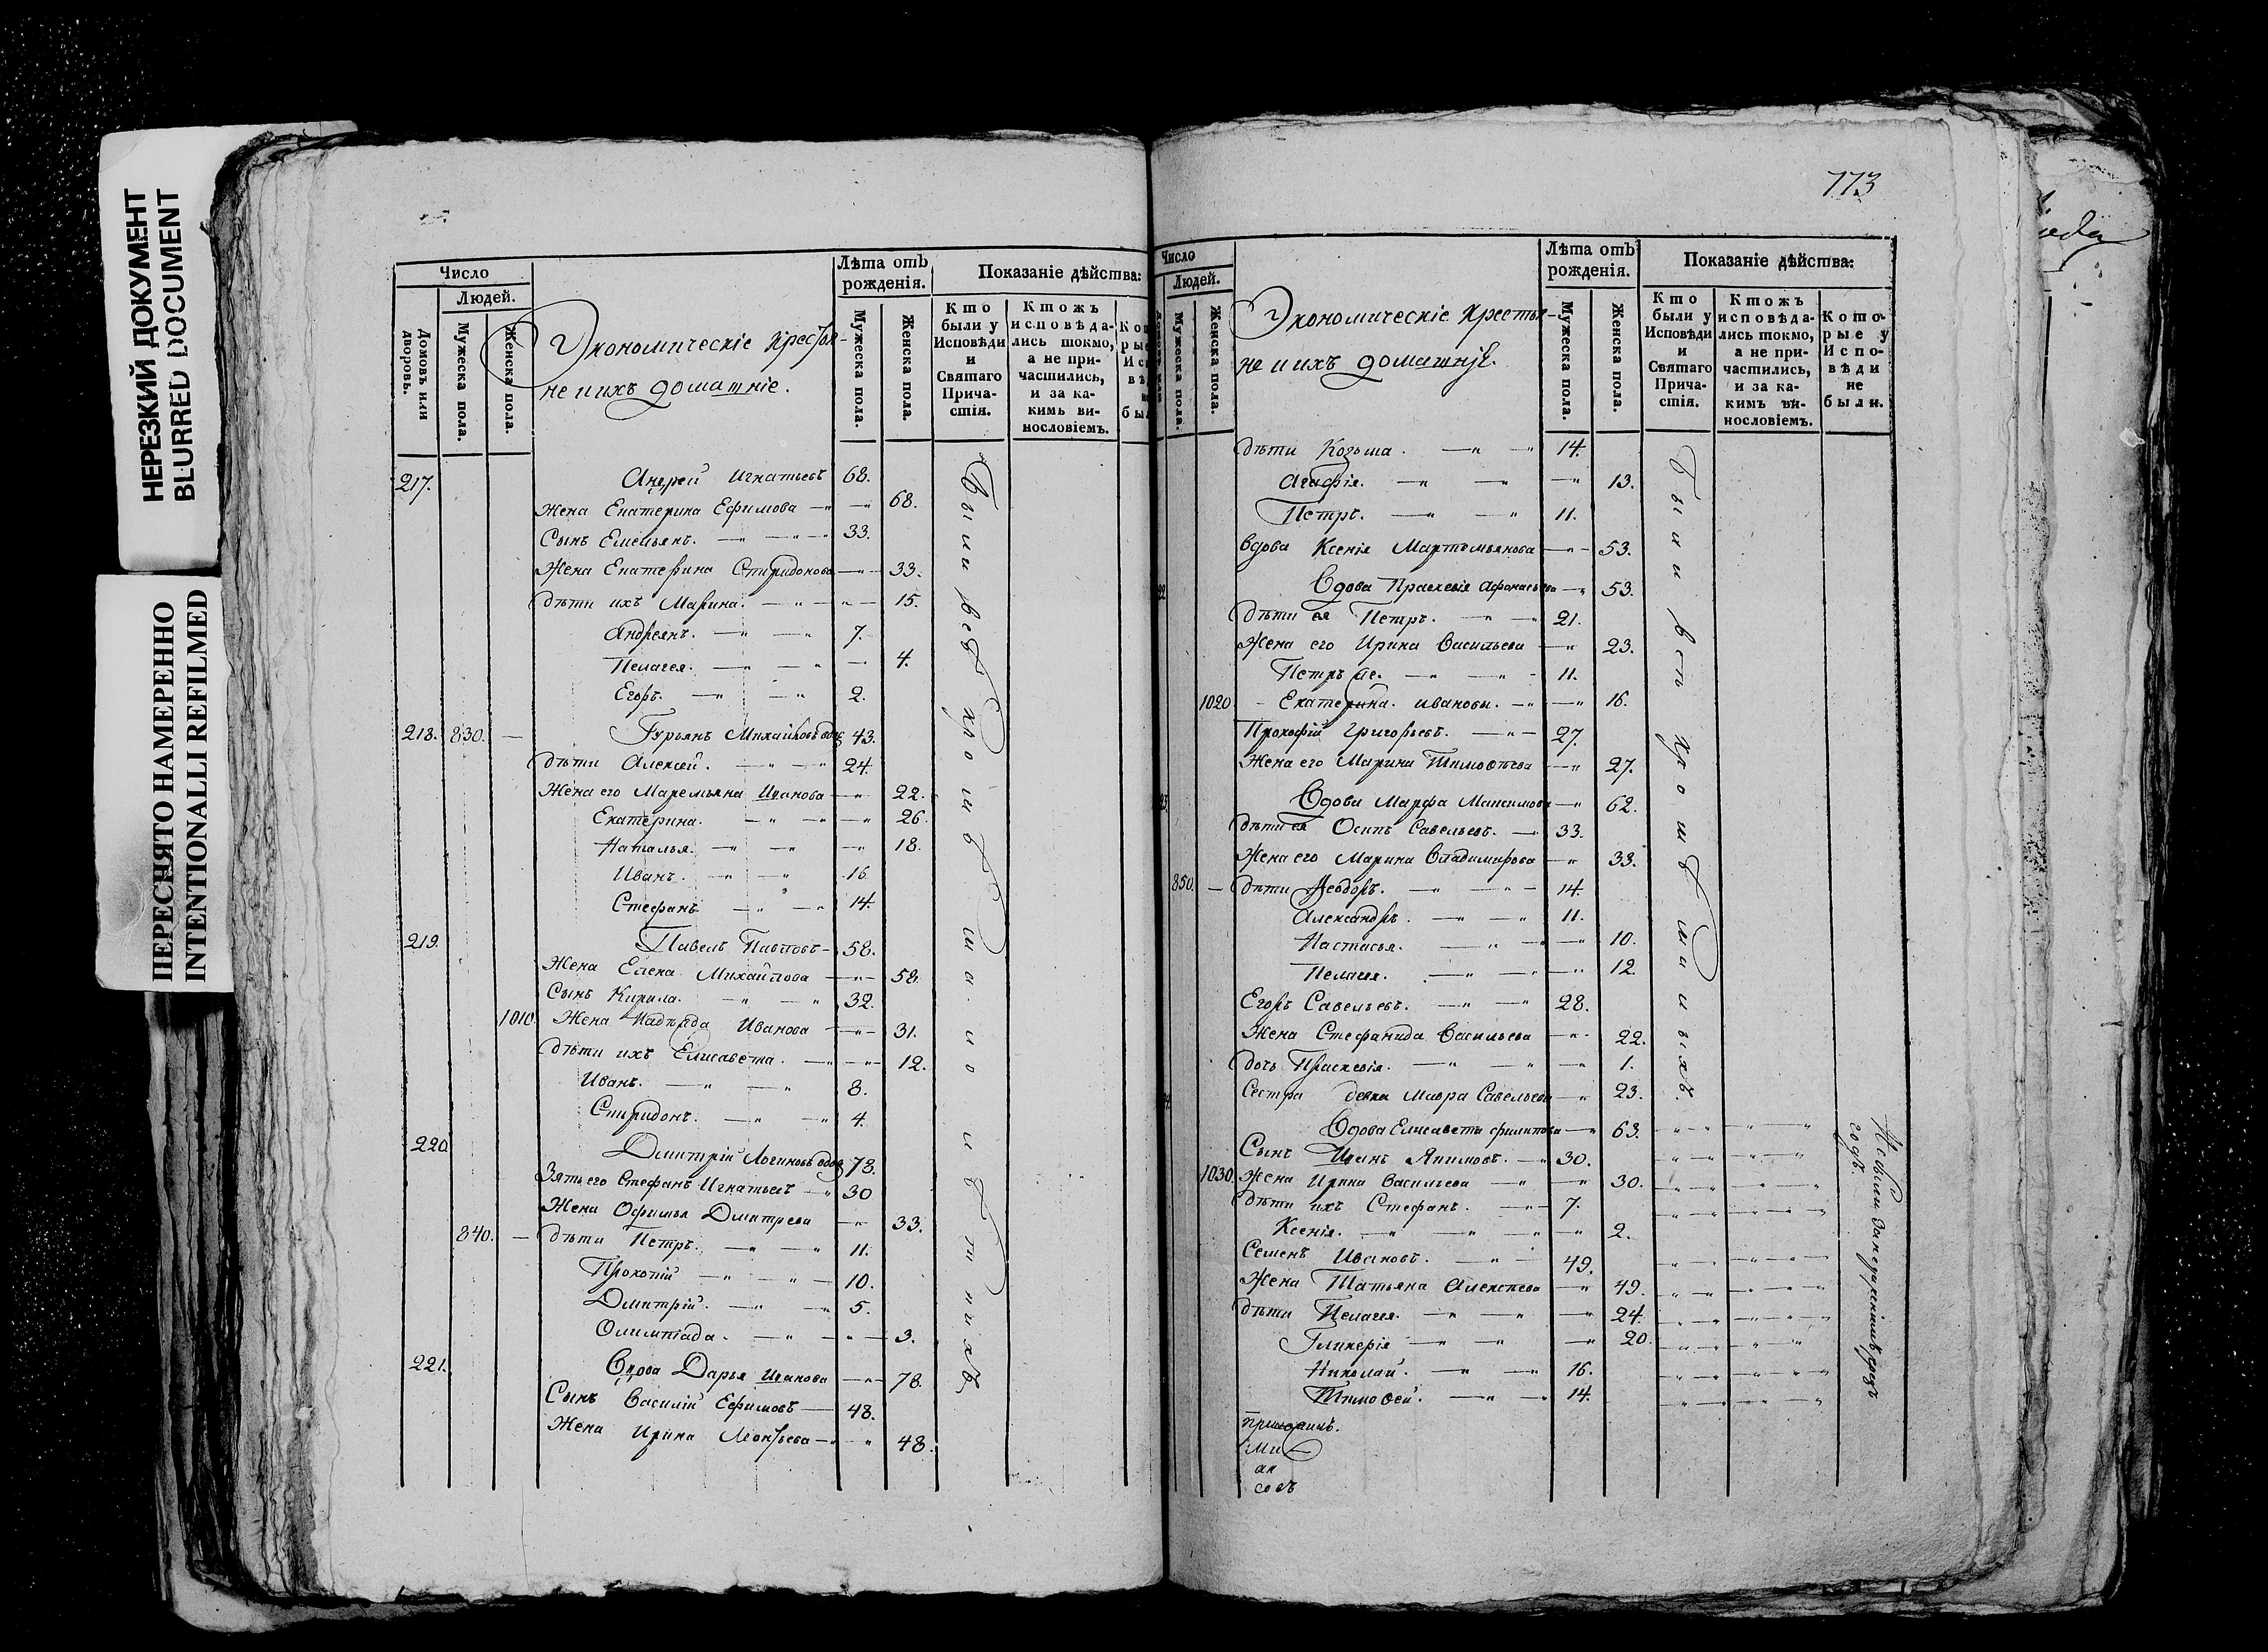 НЕРЕЗКИЙ ДОКУМЕНТ
BLURRED DOCUMENT
ПЕРЕСНЯТО НАМЕРЕННО
INTENTIONALLI REFILMED
Число
Людей.
Домовъ или дворовъ.
Мужеска пола.
Женска пола.
Экономическіе крестья-
не и ихъ домашніе.
Лѣта отъ рожденія.
Мужеска пола.
Женска пола.
Показаніе дѣйства:
Кто были у Исповѣди и Святаго Прича- стія.
Ктожъ исповѣда- лись токмо, а не при- частились, и за ка- кимъ ви- нословіемъ.
217. Андрей Игнатьевъ 68.
Жена Екатерина Ефимова 68.
Сынъ Емельянъ. 33.
Жена Екатерина Спиридонова 33.
Дѣти ихъ Марина. 15.
Андреянъ. 7.
Пелагея. 4.
Егоръ. 2.
218. 830. Гурьянъ Михайловъ вдов 43.
Дѣти Алексей. 24.
Жена его Маремьяна Иванова 22.
Екатерина. 26.
Наталья. 18.
Иванъ. 16.
Стефанъ 14.
219. Павелъ Павловъ 58.
Жена Елена Михайлова 58.
Сынъ Кирила. 32.
1010. Жена Иванова 31.
Дѣти ихъ Елисавета. 12.
Иванъ. 8.
Спиридонъ. 4.
220. Дмитрій Логиновъ вдов 78.
Зять его Стефанъ Игнатьевъ 30
Жена Офимья Дмитрева 33.
840. Дѣти Петръ. 11.
Прокопій 10.
Дмитрій. 5.
Олимпіада. 3.
221. Вдова Дарья Иванова 78.
Сынъ Василій Ефимовъ 48.
Жена Ирина Леонтьева 48.
773
Число
Людей.
Мужеска пола.
Женска пола.
Экономическіе крестья-
не и ихъ домашніе.
Лѣта отъ рожденія.
Мужеска пола.
Женска пола.
Показаніе дѣйства:
Кто были у Исповѣди и Святаго Прича- стія.
Ктожъ исповѣда- лись токмо, а не при- частились, и за ка- кимъ ви- нословіемъ.
Кото- рые у Испо- вѣди не были.
Дѣти Козьма. 14.
Агафія. 13.
Петръ. 11.
Вдова Ксенія Мартемьянова 53.
Вдова Праскевія Афонасьева 53.
Дѣти ея Петръ. 21.
Жена его Ирина Васильева 23.
Петръ же. 11.
1020 Екатерина. Ивановы. 16.
Прокофій Григорьевъ. 27.
Жена его Марина Тимофѣева 27.
Вдова Марфа Максимова 62.
Дѣти ея Осипъ Савельевъ. 33.
Жена его Марина Владимирова 33.
850. Дѣти Феодоръ. 14.
Александръ. 11.
Настасья. 10.
Пелагея. 12.
Егоръ Савельевъ. 28.
Жена Стефанида Васильева 22.
Дочь Праскевія. 1.
Сестра девка Мавра Савельева 23.
Вдова Елисавета Филипова 63.
Сынъ Иванъ Якимовъ. 30.
1030. Жена Ирина Васильева 30.
Дѣти ихъ Стефанъ. 7.
Ксенія. 2.
Семенъ Ивановъ. 49.
Жена Татьяна Алексѣева 49.
Дѣти Пелагея. 24.
Гликерія 20.
Николай. 16.
Тимофей. 14.